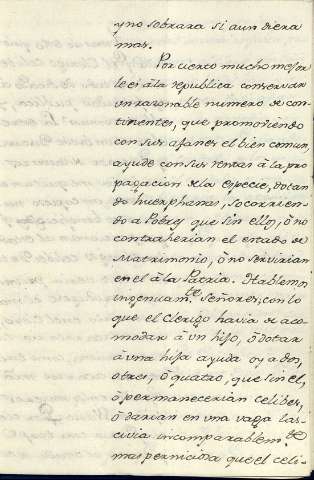 y no sobrara si aun diera
mas.
Por cierto mucho mejor
le és à la republica conservar
un razonable numero de con-
tinentes, que promoviendo
con sus afanes el bien comun,
ayude con sus rentas à la pro
pagacion de la especie, dotan
do huerphanas, socorrien-
do a Pobres que sin ello, ò no
contraherian el estado de
Matrimonio, ò no servirian
en el à la Patria. Hablemos
ingenuam.te Señores, con lo
que el Clerigo havia de aco-
modar à un hijo, ò dotar
à una hija ayuda oy a dos,
otres, ò quatro, que sin el,
ò permanecerian celibes,
ò darian en una vaga las-
civia incomparablem.te
mas perniciosa que el celi-